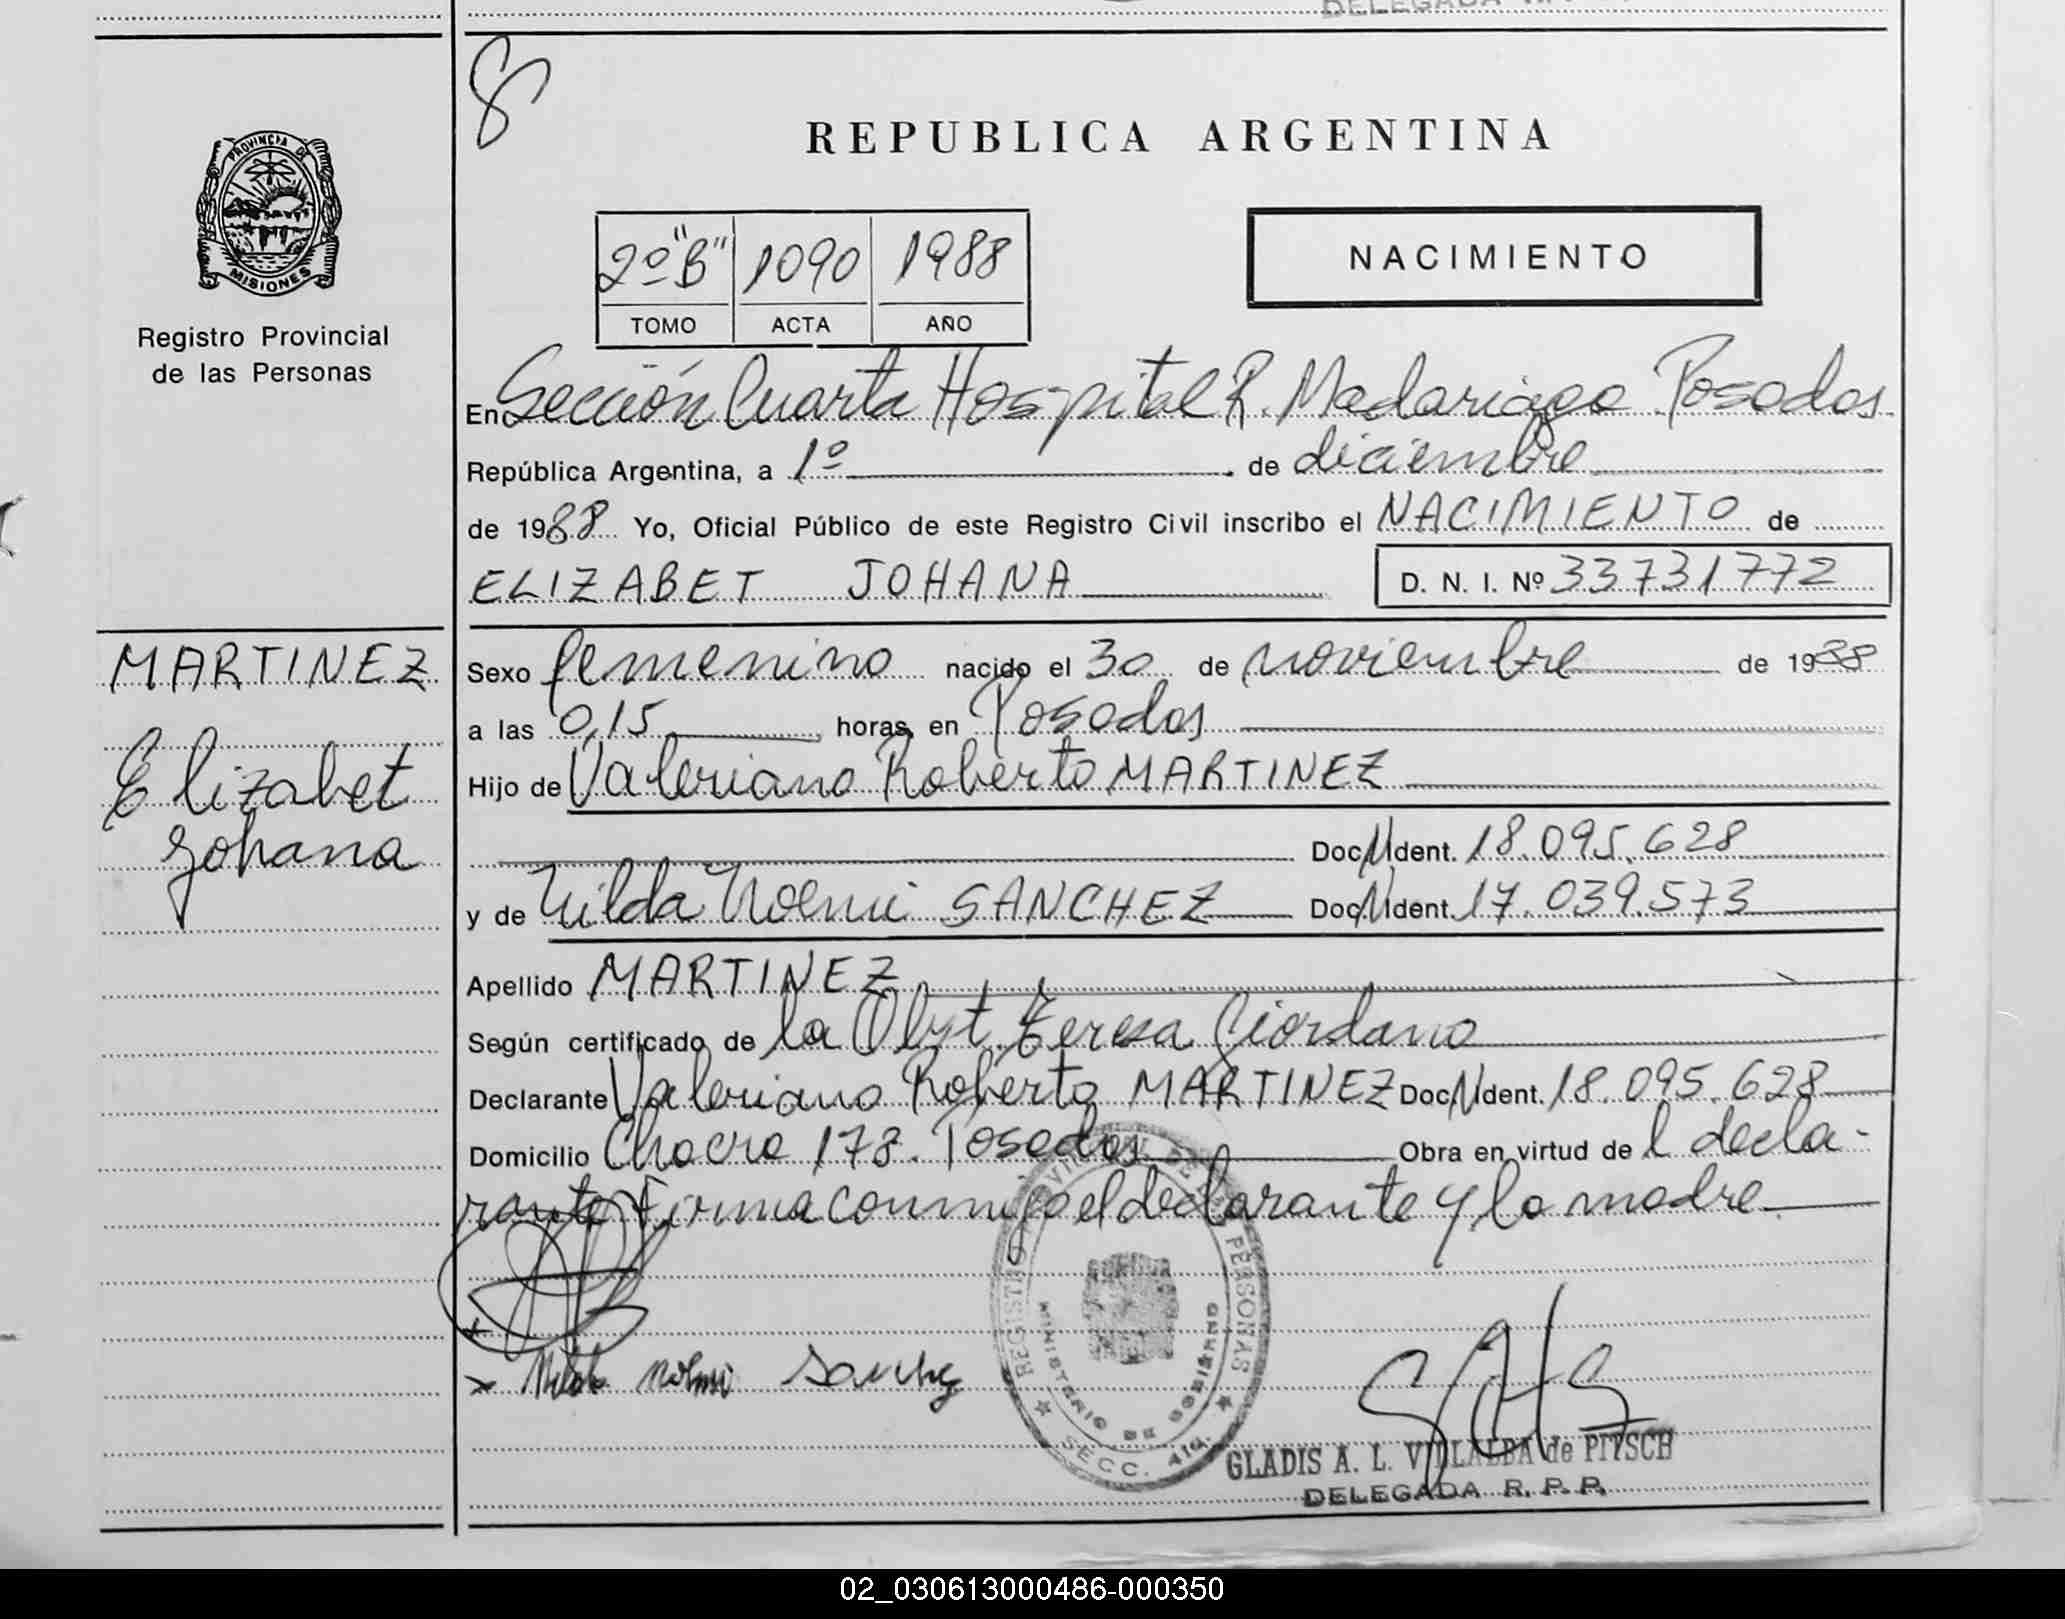 DELEGADA
8
PROVINCIA DE
MISIONES
Registro Provincial
de las Personas
REPUBLICA ARGENTINA
2º "B" 1090 1988
TOMO ACTA AÑO
NACIMIENTO
En Sección Cuarta Hospital R. Madariaga Posadas
República Argentina, a 1º de diciembre
de 1988 Yo, Oficial Público de este Registro Civil inscribo el NACIMIENTO de
ELIZABET JOHANA D. N. I. Nº 33731772
MARTINEZ
Elizabet
Johana
Sexo femenino nacido el 30 de noviembre de 1988
a las 0,15 horas, en Posadas
Hijo de Valeriano Roberto MARTINEZ
Doc. N Ident. 18.095.628
y de Nilda Noemi SANCHEZ Doc. N Ident. 17.039.573
Apellido MARTINEZ
Según certificado de la Obst. Teresa Giordano
Declarante Valeriano Roberto MARTINEZ Doc. N Ident. 18.095.628
Domicilio Chacra 178. Posadas Obra en virtud de l decla-
rante. Firma conmigo el declarante y la madre
x
x Nilda Noemi Sanchez
REGISTRO PROVINCIAL DE LAS PERSONAS
MINISTERIO DE GOBIERNO
SECC. 4ta.
GLADIS A. L. VILLALBA de PITSCH
DELEGADA R. P. P.
02_030613000486-000350